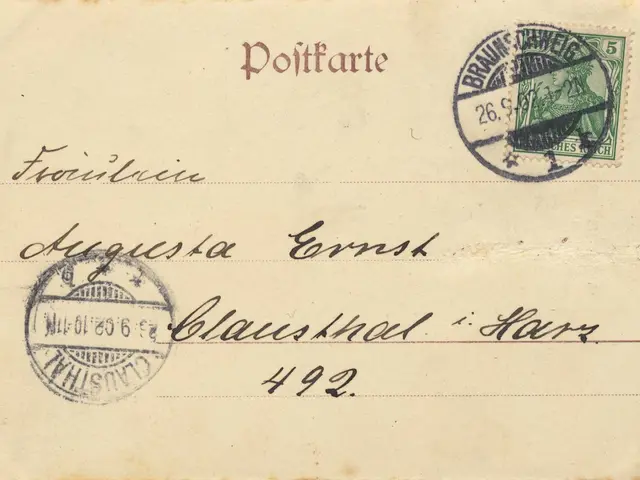 Postkarte
BRAUNSCHWEIG
5
26.9.02.
* 1 *
Fräulein
Augusta Ernst
Clausthal i. Harz.
492.
9.02.10-11N
CLAUSTHAL